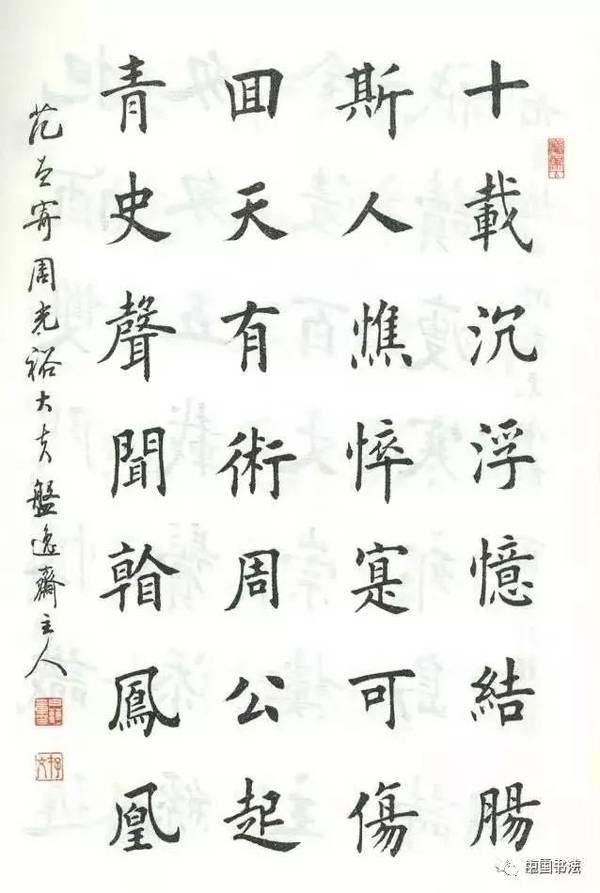 十載沉浮憶結腸
斯人憔悴寔可傷
囬天有術周公起
青史聲聞鳳凰
范寄周光裕大夫盤逸齋主人
中国书法